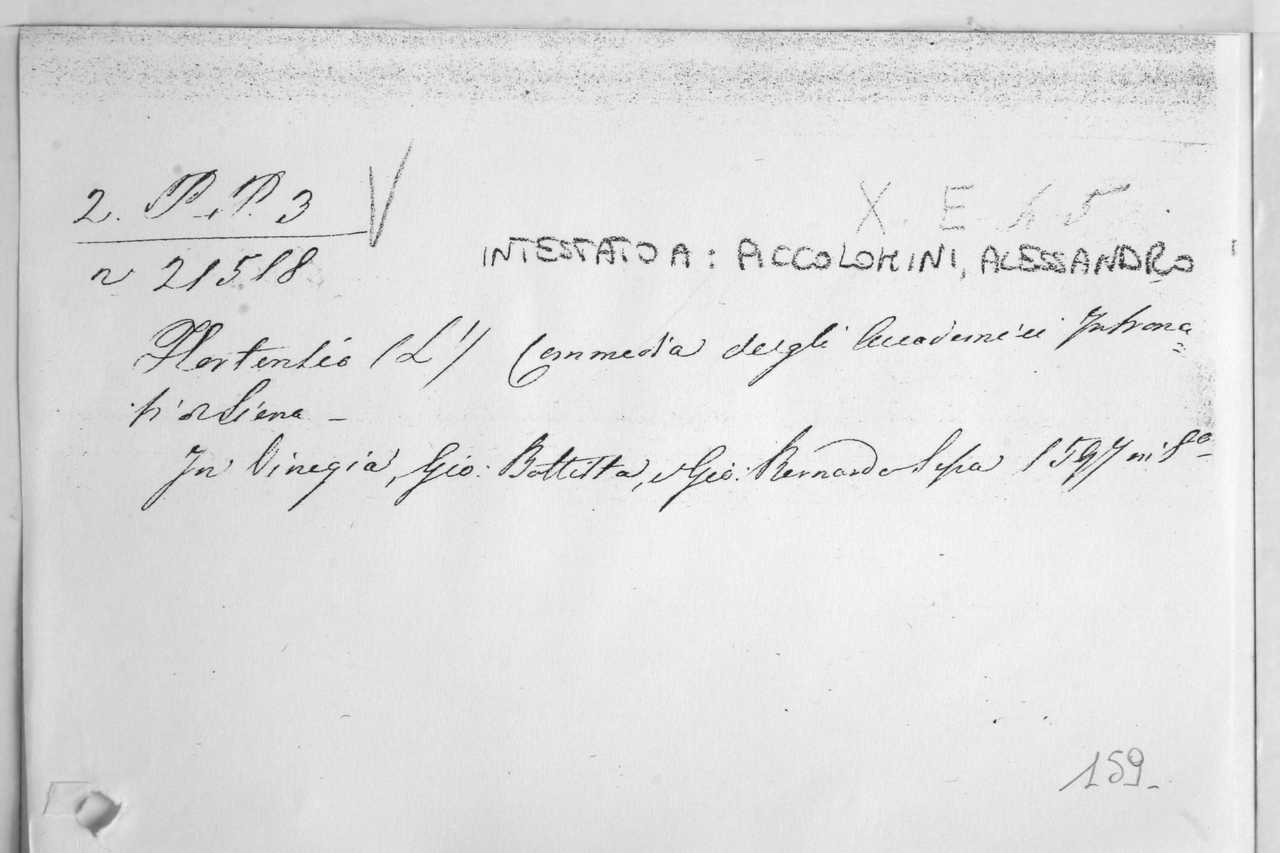 2. P. P. 3 V
X. E. 45
n 21518
INTESTATO A: PICCOLOMINI, ALESSANDRO
Hortensio (L') Commedia degli Accademici Introna=
ti di Siena _
In Vinegia, Gio: Battista, e Gio: Bernardo Sessa 1597 in 8º
159_